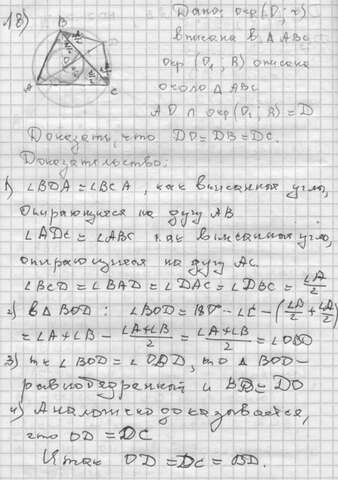 18)
Дано: окр(O; r)
вписана в ΔABC
окр (O₁; R) описана
около ΔABC
AO ∩ окр(O₁; R) = D
Доказать, что DO=DB=DC.
Доказательство:
1) ∠BDA = ∠BCA, как вписанные углы,
опирающиеся на дугу AB
∠ADC = ∠ABC как вписанные углы,
опирающиеся на дугу AC.
∠BCD = ∠BAD = ∠DAC = ∠DBC = ∠A/2
2) в ΔBOD: ∠BOD = 180° - ∠C - (∠B/2 + ∠A/2)
= ∠A+∠B - (∠A+∠B)/2 = (∠A+∠B)/2 = ∠OBD
3) тк ∠BOD = ∠OBD, то Δ BOD-
равнобедренный и BD=DO
4) Аналогично доказывается,
что OD = DC
Итак OD = DC = BD.